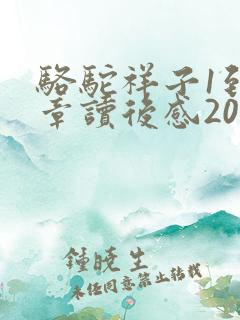 駱駝祥子1到
章讀後感20
鍾曉生
未任同意禁止转载